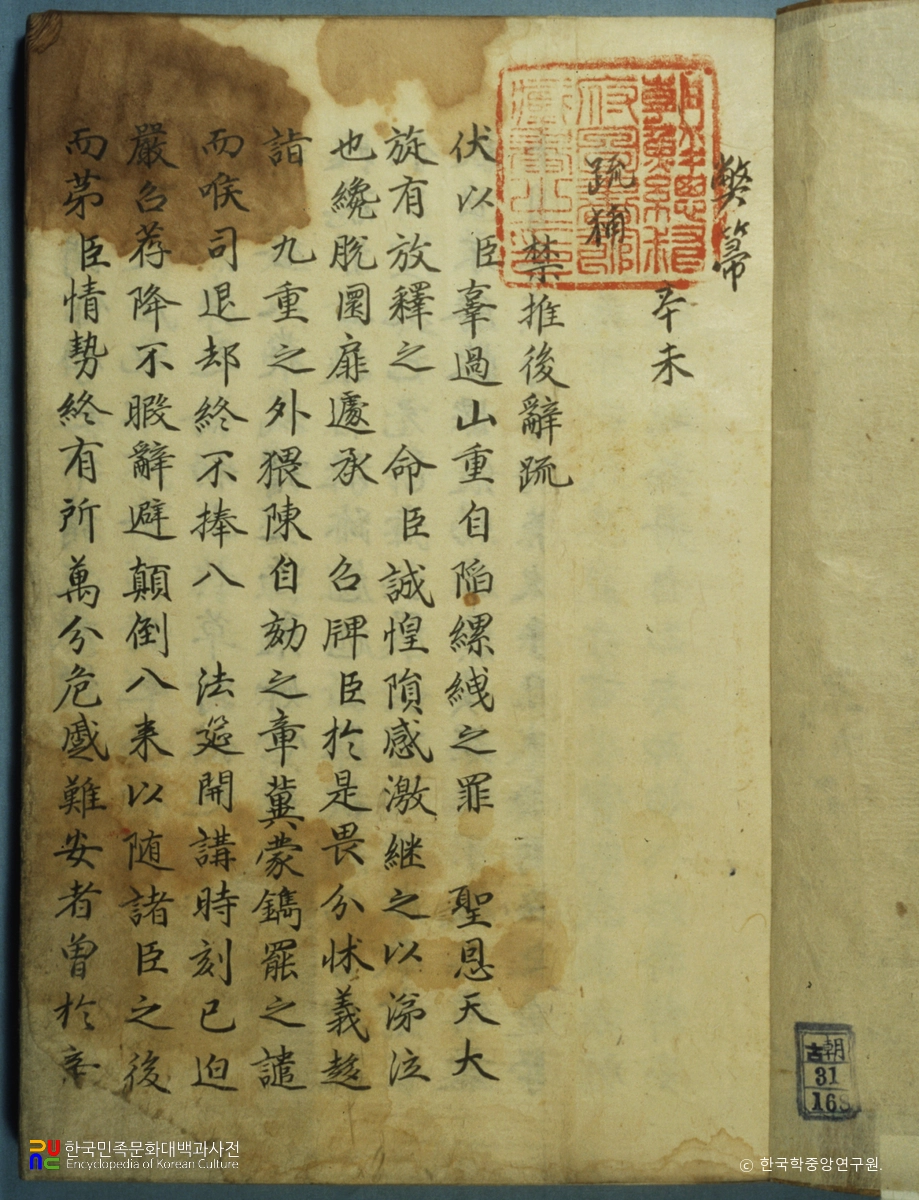 弊帚
辛未
疏箚
禁推後辭疏
伏以臣辜過山重自陷縲絏之罪 聖恩天大
旋有放釋之 命臣誠惶隕感激継之以涕泣
也纔脫圜扉遽承 召牌臣於是畏分怵義趍
詣 九重之外猥陳自劾之章冀蒙鐫罷之譴
而喉司退却終不捧入 法筵開講時刻已迫
嚴召荐降不暇辭避顛倒入来以随諸臣之後
而苐臣情勢終有所萬分危慼難安者曾於
朝鮮總督府圖書館藏書之印
朝
古
31
168
한국민족문화대백과사전
Encyclopedia of Korean Culture
© 한국학중앙연구원.